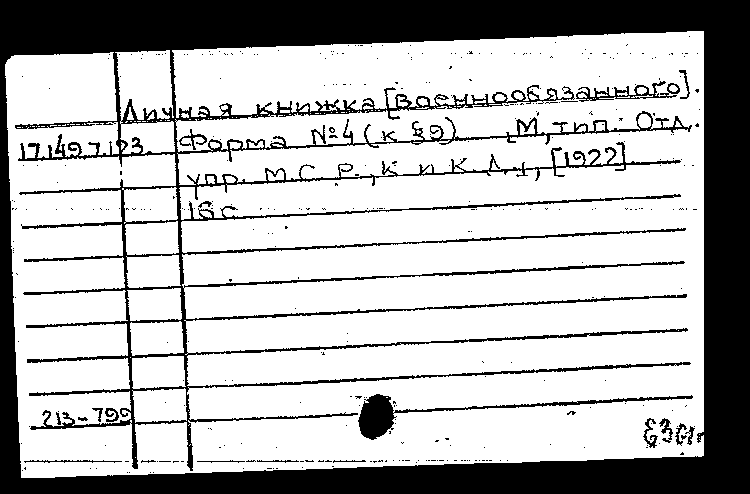 Личная книжка [военнообязанного].
17.149.7.193. Форма №4 (к §9) [М, тип. Отд.
упр. М.С.Р., К и К.Д.], [1922]
16 с
213-799